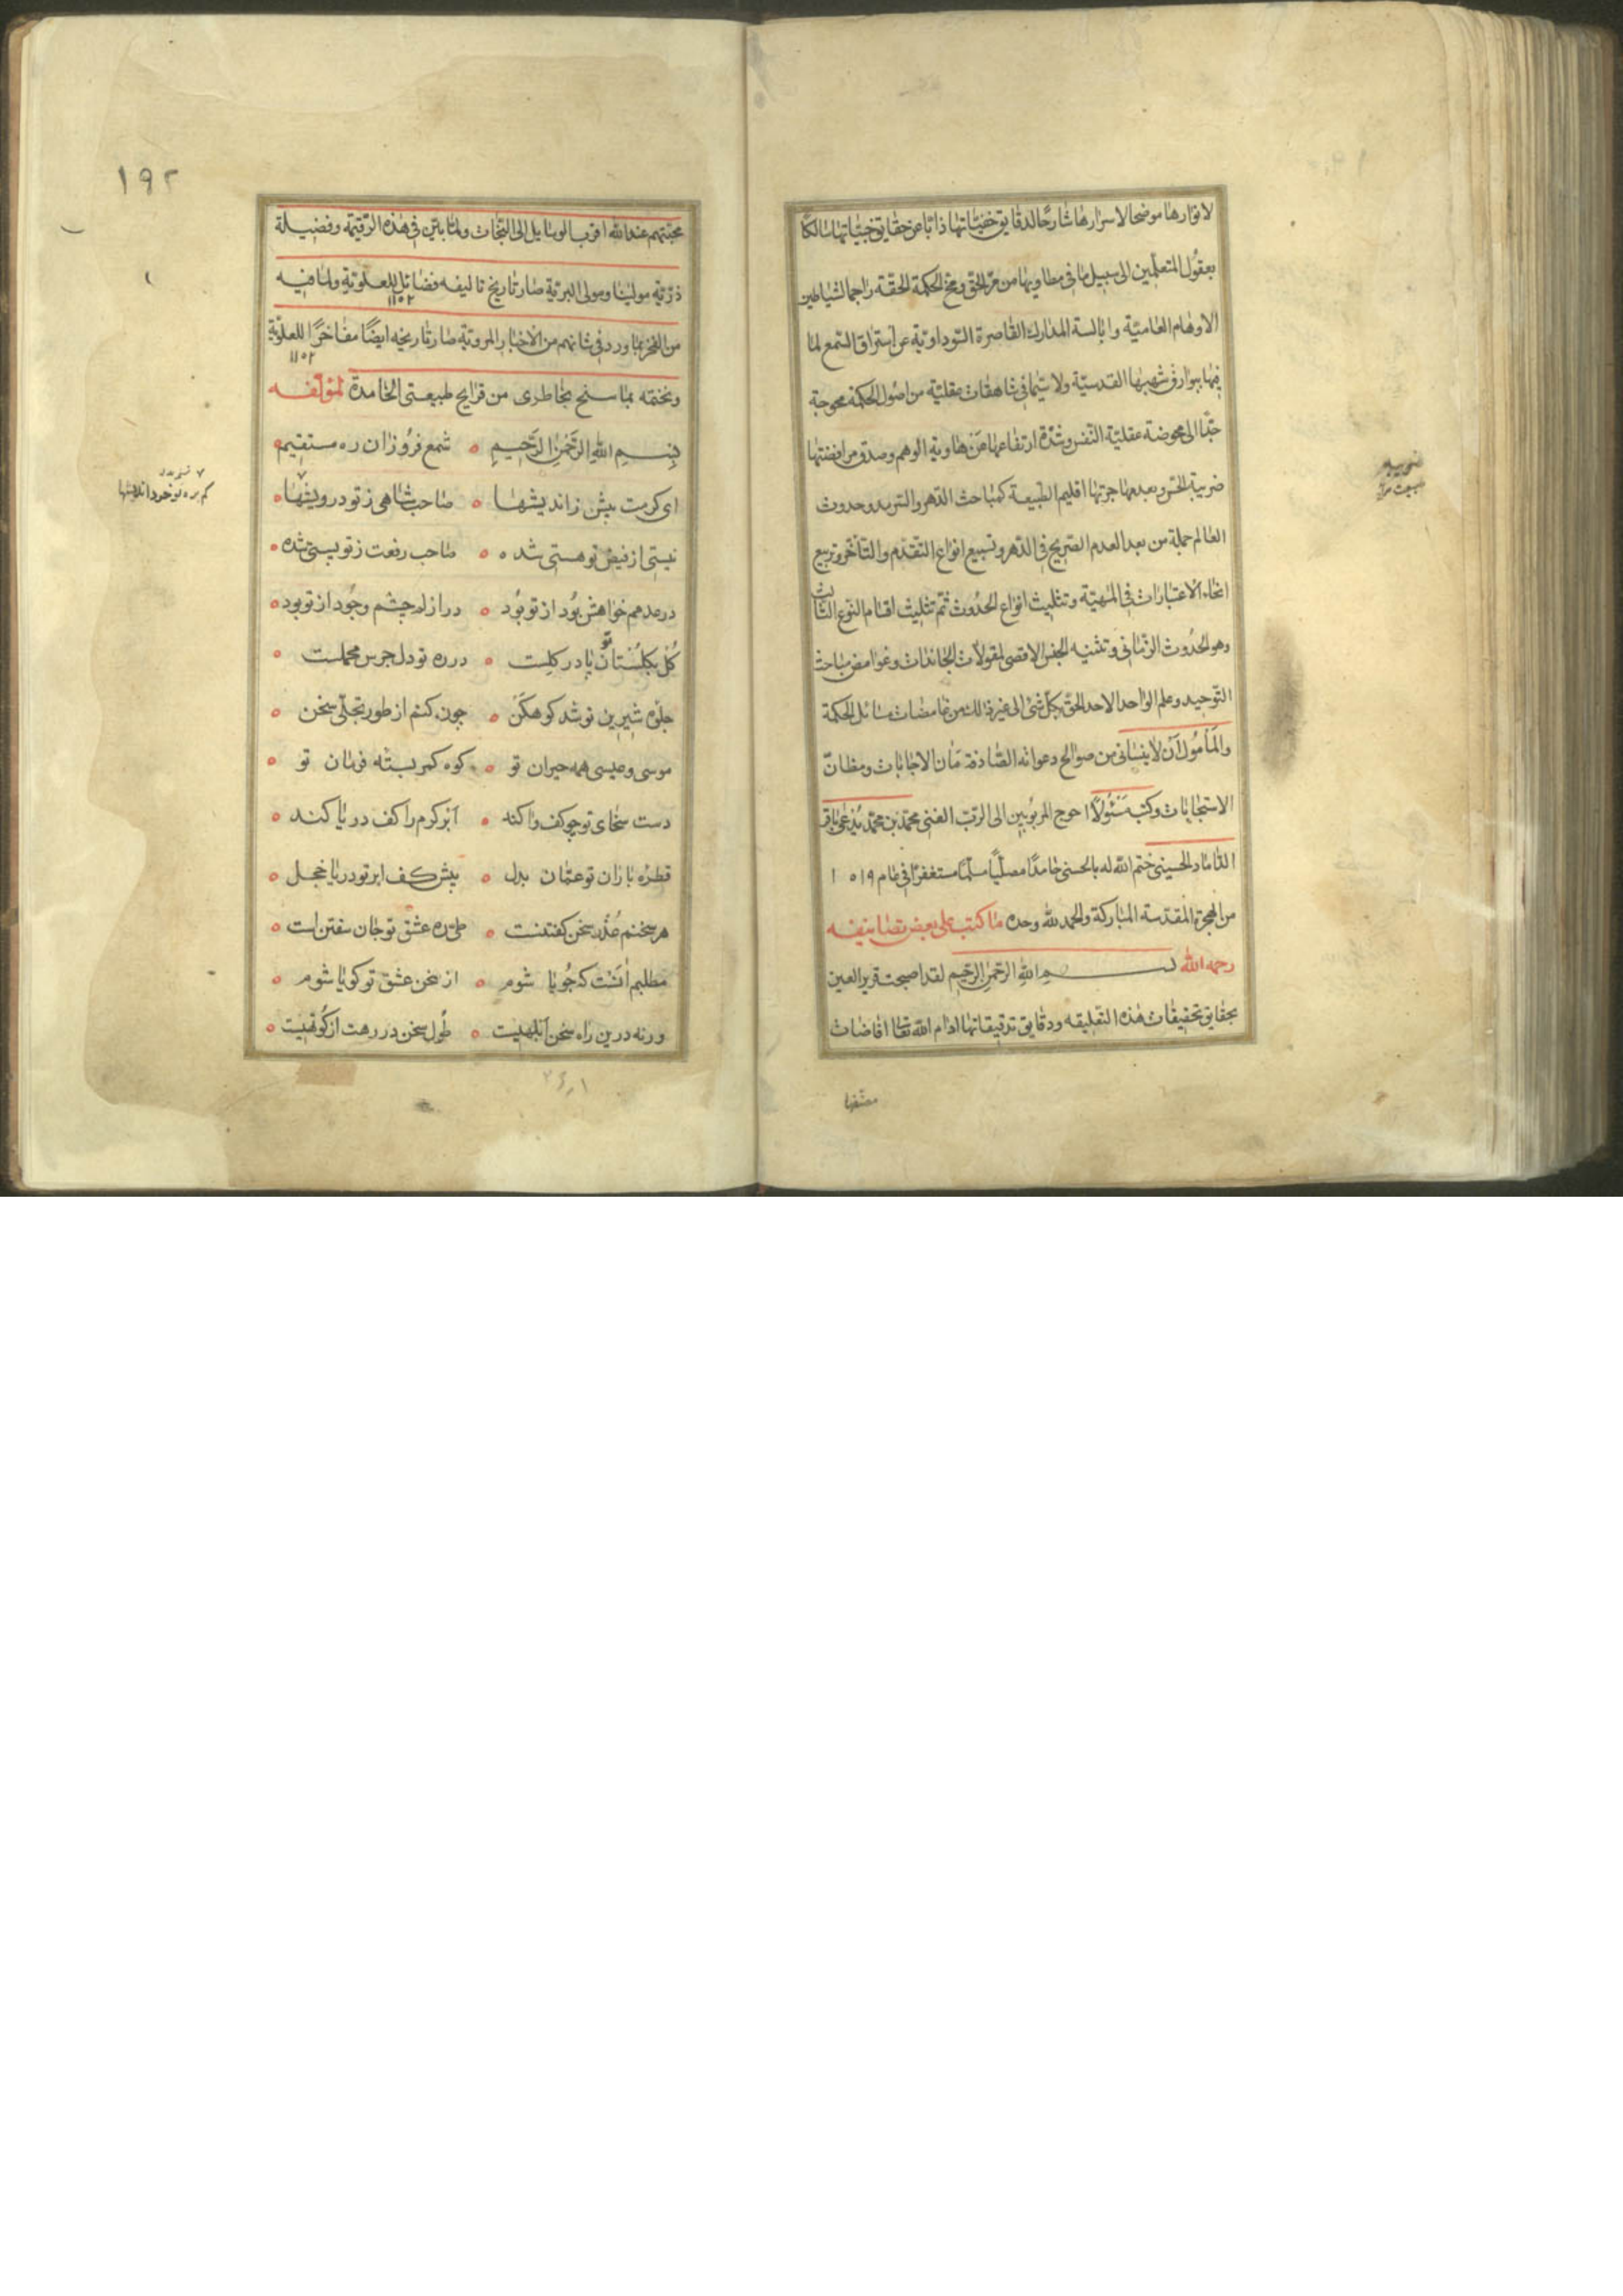 لانوارها موضحا لاسرارها شارحًا لدقايق خفيّاتها ذابّا عن حقايق خبيّاتها سالكًا
بعقول المتعلّمين الى سبيل ما فى مطاويها من مرّ الحق و مخّ الحكمة الحقة راجما لشياطين
الاوهام العاميّة و ابالسة المدارك القاصرة السّوداويّة عن استراق السّمع لما
فيها ببوارق شهبها القدسيّة ولا سيّما فى شاهقات عقليّة من اصول الحكمة محوجة
جدّا الى محوضة عقليّة النّفس و شدّة ارتفاعها عن هاوية الوهم وصدق مرافضتها
ضريبة الحسّ و بعد مهاجرتها اقليم الطّبيعة كمباحث الدّهر والسّرمد وحدوث
العالم جملة من بعد العدم الصّريح فى الدّهر و تسبيع انواع التقدّم والتأخّر و تربيع
انحاء الاعتبارات فى المهيّة وتثليث انواع الحدُوث ثمّ تثليث اقسام النّوع الثالث
وهو الحدُوث الزّمانى و تثنيه الجنس الاقصى لمقولات الجائزات و غوامض مباحث
التّوحيد وعلم الواحد الاحد الحقّ بكلّ شئ الى غير ذلك من غامضات مسائل الحكمة
والمأمُول ان لا ينسانى من صوالح دعواته الصّادفة مان الاجابات و مظانّ
الاستجابات وكتب مَسْئُولًا احوج المربُوبين الى الرّبّ الغنى محمّد بن محمّد يُدعى باقر
الدّاماد الحسينى ختم الله له بالحسنى حامدًا مصلّيًا مسلّمًا مستغفرًا فى عام ١٠١٩
من الهجرة المقدّسة المباركة والحمد لله وحده ما كتب على بعض تصانيفه
رحمه الله بسم الله الرّحمن الرّحيم لقد اصبحت قرير العين
بحقايق تحقيقات هذه التعليقه ودقايق تدقيقاتها ادام الله تعالى افاضات
مصنّفها
١٩٢
محبّتهم عند الله اقرب الوسايل الى النّجات ولمّا بيّن فى هذه الرّقيمة وفضيلة
ذرّيّة مولينا ومولى البريّة صار تاريخ تاليفه فضائل للعلويّة ولما فيه
١١٥٢
من الفخر بما ورد فى شانهم من الاخبار المرويّة صار تاريخه ايضًا مفاخرًا للعلويّة
١١٥٢
ونختمه بما سنح بخاطرى من قرايح طبيعتى الخامدة لمؤلّفه
بسم الله الرّحمن الرّحيم شمع فرُوزان ره مستقيم
اى كرمت بيش ز انديشها صاحب شاهى ز تو درويشها
نيستى از فيض تو هستى شده صاحب رفعت ز تو پستى شده
در عدمم خواهش بود از تو بُود در ازلم چشم وجُود از تو بود
گُل بگلستان تو پا در گلست در ره تو دل جرس محملست
جلوه شيرين تو شد كوهكن چون كنم از طور تجلّى سخن
موسى و عيسى همه حيران تو كوه كمر بسته فرمان تو
دست سخاى تو چو كف وا كند ابر كرم را كف دريا كند
قطره باران تو عمّان بدل پيش كف ابر تو دريا خجل
هر سخنم عُذر سخن گفتنست طىّ ره عشق تو جان سفتن است
مطلبم انست كه جُويا شوم از سخن عشق تو گويا شوم
ورنه درين راه سخن ابلهيست طُول سخن در رهت از كُوتهيست